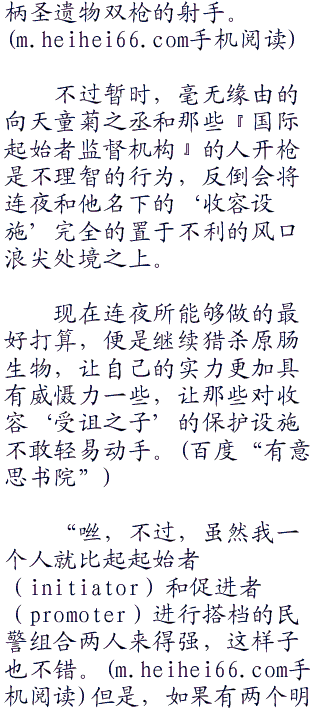 柄圣遗物双枪的射手。
(m.heihei66.com手机阅读)
不过暂时，毫无缘由的
向天童菊之丞和那些『国际
起始者监督机构』的人开枪
是不理智的行为，反倒会将
连夜和他名下的‘收容设
施’完全的置于不利的风口
浪尖处境之上。
现在连夜所能够做的最
好打算，便是继续猎杀原肠
生物，让自己的实力更加具
有威慑力一些，让那些对收
容‘受诅之子’的保护设施
不敢轻易动手。(百度“有意
思书院”)
“咝，不过，虽然我一
个人就比起起始者
（initiator）和促进者
（promoter）进行搭档的民
警组合两人来得强，这样子
也不错。(m.heihei66.com手
机阅读)但是，如果有两个明